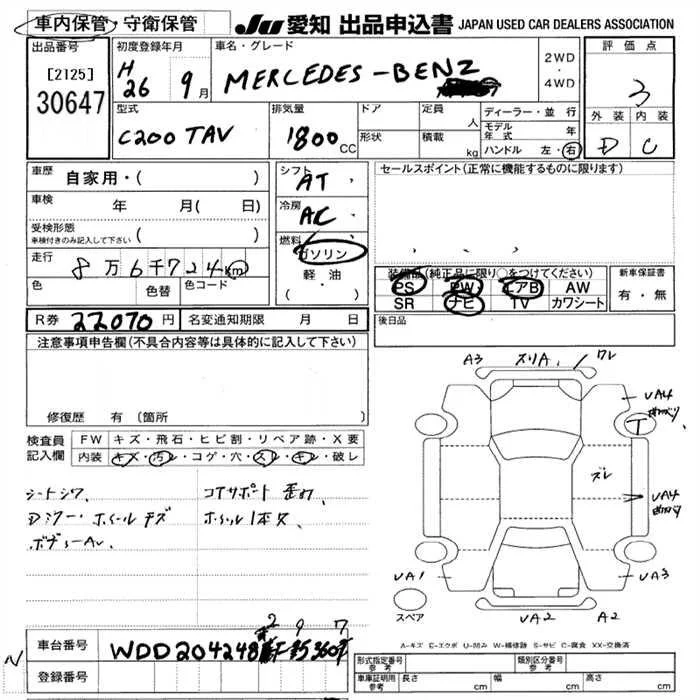 車内保管・守衛保管
JU 愛知 出品申込書 JAPAN USED CAR DEALERS ASSOCIATION
出品番号
[2125]
30647
初度登録年月
H
26 9月
車名・グレード
MERCEDES-BENZ
2WD
・
4WD
評価点
3
外装 内装
D C
型式
C200 TAV
排気量
1800CC
ドア
形状
定員 人
積載 kg
ディーラー・並行
モデル年式 年
ハンドル 左・右
車歴 自家用・( )
車検 年 月( 日)
受検形態
車検付きのみ記入して下さい ( )
走行 8万6千724km
色 色替 色コード
シフト
AT
冷房
AC
燃料
ガソリン
軽・油
( ・ )
セールスポイント(正常に機能するものに限ります)
装備品(純正品に限り○をつけてください)
PS PW エアB AW
SR ナビ TV カワシート
新車保証書
有・無
R券 22070円 名変通知期限 月 日
後日品
注意事項申告欄(不具合内容等は具体的に記入して下さい)
修復歴 有 (箇所 )
検査員記入欄
FW キズ・飛石・ヒビ割・リペア跡・X要
内装 キズ・汚レ・コゲ・穴・スレ・キレ・破レ
シートシワ
コアサポート
ホイールキズ
A3 スリA ワレ
UA4
T
ズレ
UA4
UA1 UA3
UA2 A2
スペア
車台番号 WDD204248
登録番号
N
A-キズ E-エクボ U-凹み W-補修跡 S-サビ C-腐食 XX-交換済
形式指定番号 参考 類別区分番号 参考
車庫証明用 参考 長さ cm 幅 cm 高さ cm